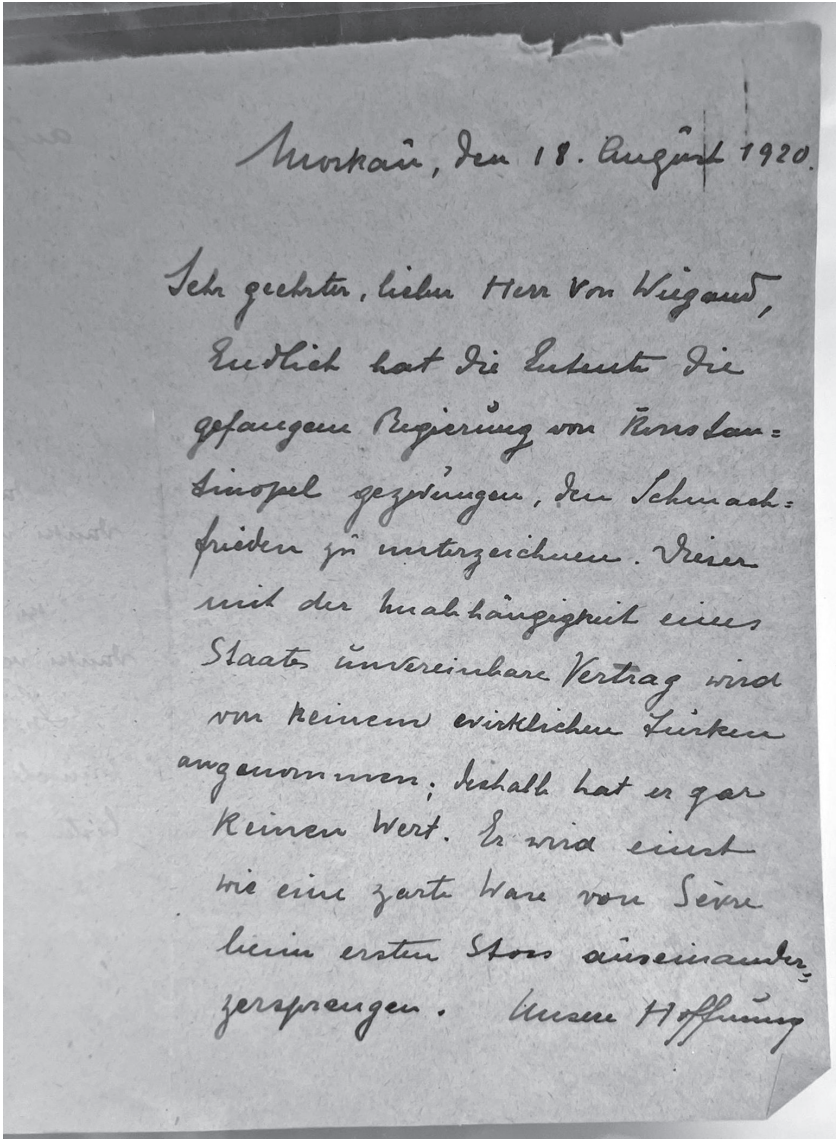 Moskau, den 18. August 1920.
Sehr geehrter, lieber Herr von Wiegand,
Endlich hat die Entente die
gefangene Regierung von Konstan=
tinopel gezwungen, den Schmach=
frieden zu unterzeichnen. Dieser
mit der Unabhängigkeit eines
Staates unvereinbare Vertrag wird
von keinem wirklichen Türken
angenommen; deshalb hat er gar
keinen Wert. Er wird einst
wie eine zarte Ware von Sèvre
beim ersten Stoss auseinander=
zersprengen. Unsere Hoffnung